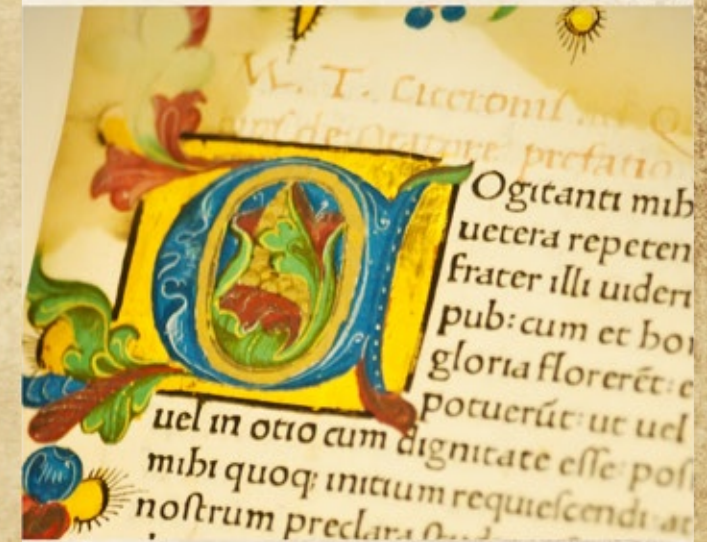 M. T. Ciceronis ad Q
de Oratore prefatio
COgitanti mih
uetera repeten
frater illi uideri
pub: cum et bo
gloria floreret: e
potuerūt: ut uel
uel in otio cum dignitate eſſe: poſ
mihi quoq; initium requieſcendi: at
noſtrum preclara